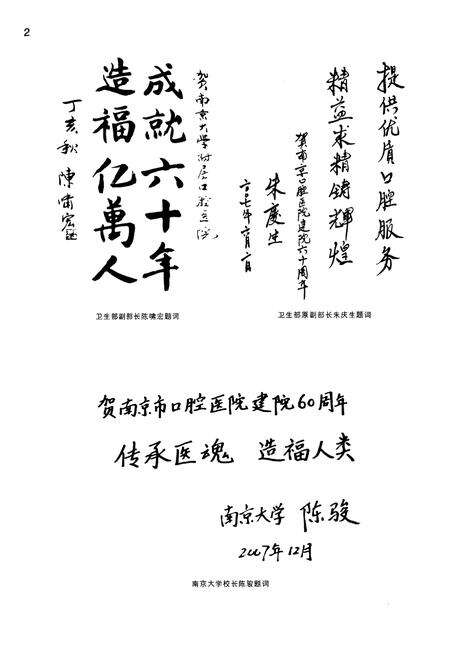 2
贺南京大学附属口腔医院
成就六十年
造福亿萬人
丁亥秋 陳啸宏
卫生部副部长陈啸宏题词
提供优质口腔服务
精益求精铸辉煌
贺南京口腔医院建院六十周年
朱慶生
二〇〇七年六月六日
卫生部原副部长朱庆生题词
贺南京市口腔医院建院60周年
传承医魂 造福人类
南京大学 陈骏
2007年12月
南京大学校长陈骏题词